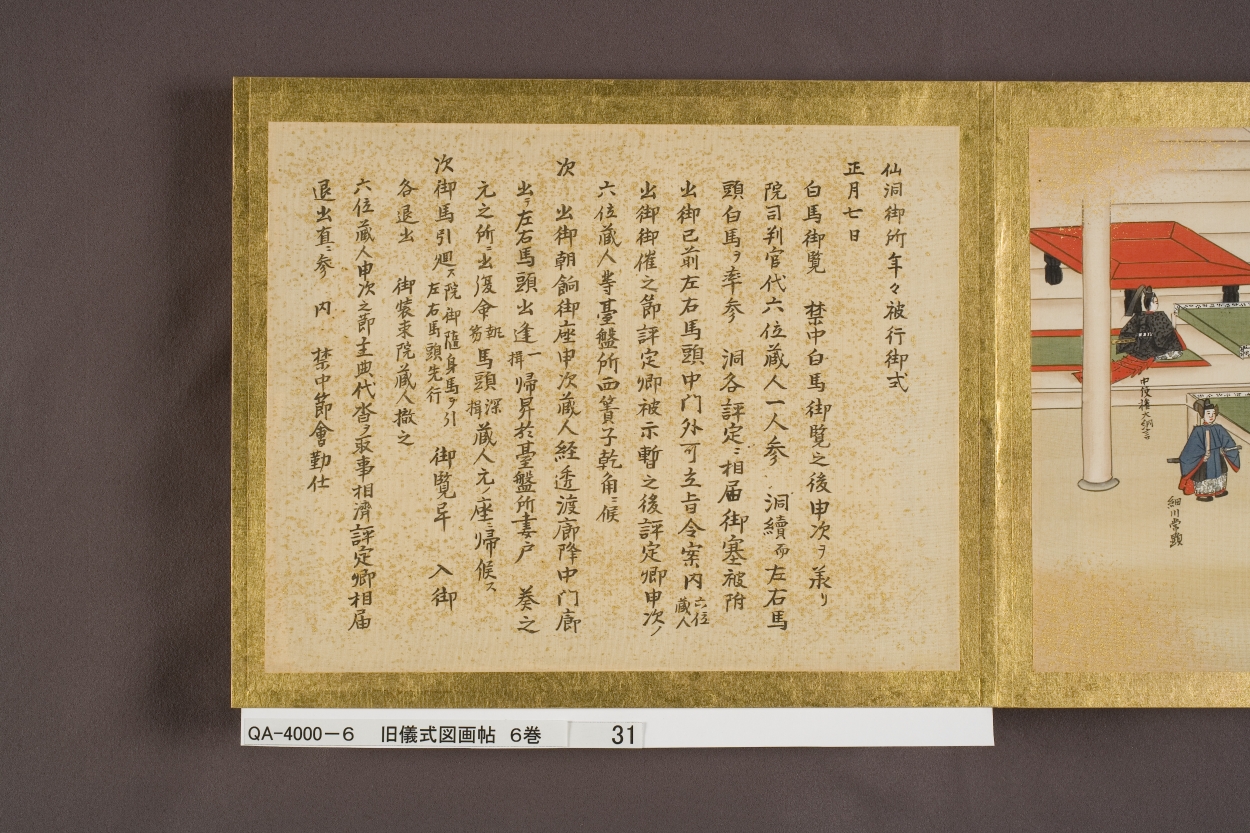 仙洞御所年々被行御式
正月七日
白馬御覧　禁中白馬御覧之後申次ヲ承リ
院司判官代六位蔵人一人参　洞續而左右馬
頭白馬ヲ率参　洞各評定ニ相届御塞被附
出御已前左右馬頭中门外可立旨令案内六位蔵人
出御御催之節評定卿被示暫之後評定卿申次ノ
六位蔵人等臺盤所西簀子乾角ニ候
次　出御朝餉御座申次蔵人経透渡廊降中门廊
出ヲ左右馬頭出逢一揖帰昇於臺盤所妻戸　奏之
元之所ニ出復命馬頭深揖蔵人元ノ座ニ帰候ス
次御馬引廻ス院御随身馬ヲ引左右馬頭先行　御覧畢　入御
各退出　御装束院蔵人撤之
六位蔵人申次之節主典代沓ヲ取事相濟評定卿相届
退出直ニ参　内　禁中節會勤仕
中院権大納言
細川常顕
QA-4000-6　旧儀式図画帖　6巻　31